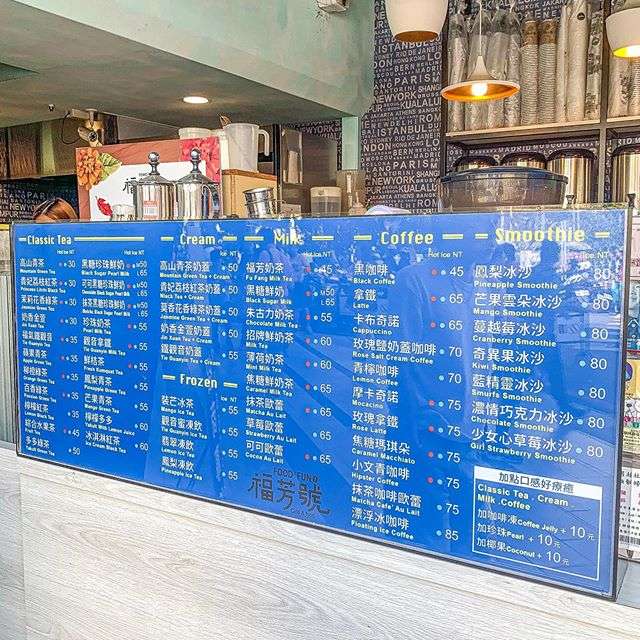 Classic Tea
Hot Ice NT
高山青茶 30
Mountain Green Tea
貴妃荔枝紅茶 30
茉莉花香綠茶 30
奶香金萱 30
Jin Xuan Tea
福氣鐵觀音 35
蘋果青茶 35
Apple Green Tea
柳橙綠茶 35
Orange Green Tea
百香綠茶 35
檸檬紅茶
綜合水果茶 45
Fruit Tea
多多綠茶 50
Yakult Green Tea
Hot Ice NT
黑糖珍珠鮮奶 M 50
Black Sugar Pearl Milk L 65
可可黑糖珍珠鮮奶 M 50
L 65
抹茶黑糖珍珠鮮奶 M 50
L 65
珍珠奶茶 50
Pearl Milk Tea
觀音拿鐵 55
Tie Guanyin Milk Tea
鮮桔茶 55
Fresh Kumquat Tea
鳳梨青茶 55
Pineapple Green Tea
芒果青茶 55
Mango Green Tea
檸檬多多 60
Yakult With Lemon Juice
冰淇淋紅茶 60
Ice Cream Black Tea
Cream
Hot Ice NT
高山青茶奶蓋 50
Mountain Green Tea + Cream
貴妃荔枝紅茶奶蓋 50
Black Tea + Cream
茉莉花香綠茶奶蓋 50
Green Tea + Cream
奶香金萱奶蓋 50
Jin Xuan Tea + Cream
鐵觀音奶蓋 50
Tie Guanyin Tea + Cream
Frozen
Hot Ice NT
芒果冰茶 55
Mango Ice Tea
觀音蜜凍飲 55
翡翠凍飲 55
Lemon Ice Tea
鳳梨凍飲 55
Pineapple Ice Tea
Milk
Hot Ice NT
福芳奶茶 50
Fu Fang Milk Tea
黑糖鮮奶 M 50
Black Sugar Milk L 65
朱古力奶茶 50
Chocolate Milk Tea
招牌鮮奶茶 60
薄荷奶茶 60
Mint Milk Tea
焦糖鮮奶茶 60
Caramel Milk Tea
抹茶歐蕾 60
Matcha Au Lait
草莓歐蕾 60
Strawberry Au Lait
可可歐蕾 60
Cocoa Au Lait
FOOD FUNG
福芳號
Coffee
Hot Ice NT
黑咖啡 45
Black Coffee
拿鐵 65
Latte
卡布奇諾 65
Cappuccino
玫瑰鹽奶蓋咖啡 70
Rose Salt Cream Coffee
青檸咖啡 70
Lemon Coffee
摩卡奇諾 75
Mocacino
玫瑰拿鐵 75
Rose Latte
焦糖瑪琪朵 75
Caramel Macchiato
小文青咖啡 75
Hipster Coffee
抹茶咖啡歐蕾 75
Matcha Cafe' Au Lait
漂浮冰咖啡 85
Floating Ice Coffee
Smoothie
Hot Ice NT
鳳梨冰沙 80
Pineapple Smoothie
芒果雲朵冰沙 80
Mango Smoothie
蔓越莓冰沙 80
Cranberry Smoothie
奇異果冰沙 80
Kiwi Smoothie
藍精靈冰沙 80
Smurfs Smoothie
濃情巧克力冰沙 80
Chocolate Smoothie
少女心草莓冰沙 80
Girl Strawberry Smoothie
加點口感好療癒
Classic Tea . Cream .
Milk .Coffee
加咖啡凍Coffee Jelly + 10元
加珍珠Pearl + 10元
加椰果Coconut + 10元
PARIS
NEWYORK
ISTANBUL
MADRID